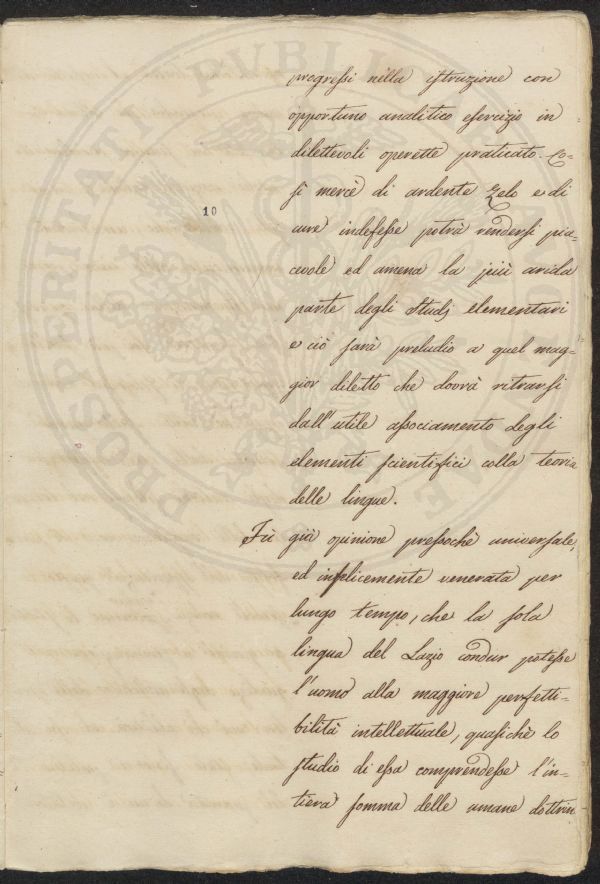 progressi nella istruzione con
opportuno analitico esercizio in
dilettevoli operette praticato. Co-
sì mercè di ardente zelo e di
cure indefesse potrà rendersi pia-
cevole ed amena la più arida
parte degli Studj elementari
e ciò sarà preludio a quel mag-
gior diletto che dovrà ritrarsi
dall'utile associamento degli
elementi scientifici colla teoria
delle lingue.
Fù già opinione pressochè universale,
ed infelicemente venerata per
lungo tempo, che la sola
lingua del Lazio condur potesse
l'uomo alla maggiore perfetti-
bilità intellettuale, quasichè lo
studio di essa comprendesse l'in-
tiera somma delle umane dottrin
10
PROSPERITATI PUBLICAE